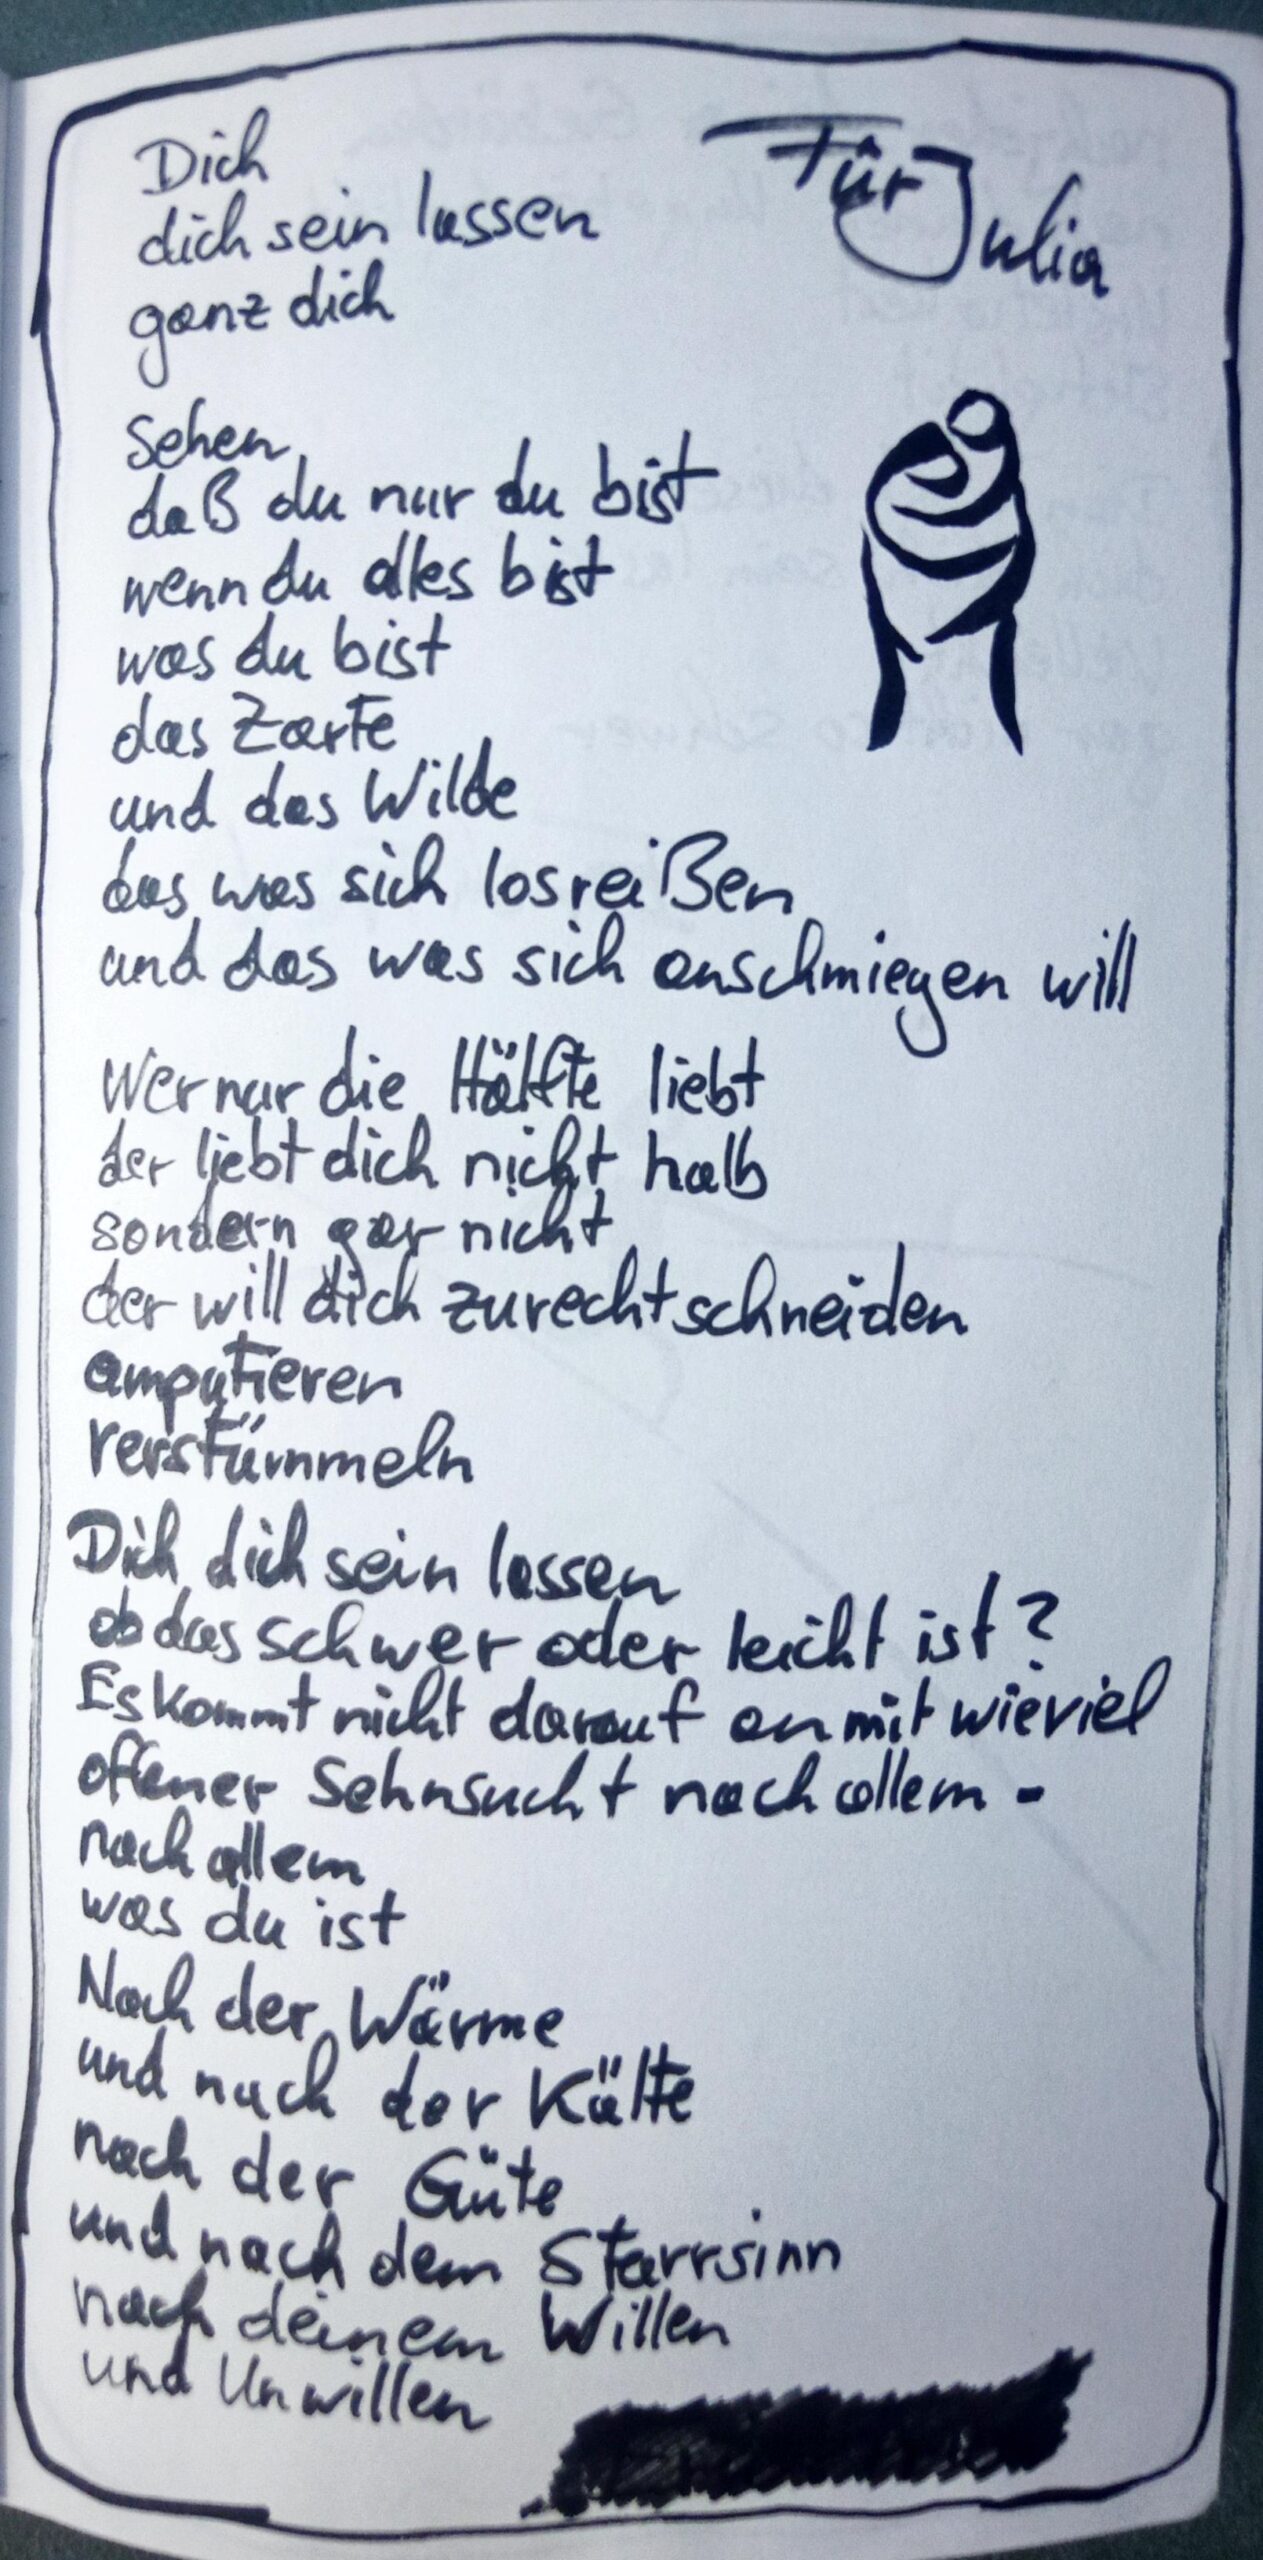 Für Julia
Dich
dich sein lassen
ganz dich
Sehen
daß du nur du bist
wenn du alles bist
was du bist
das Zarte
und das Wilde
das was sich losreißen
und das was sich anschmiegen will
Wer nur die Hälfte liebt
der liebt dich nicht halb
sondern gar nicht
der will dich zurechtschneiden
amputieren
verstümmeln
Dich dich sein lassen
ob das schwer oder leicht ist?
Es kommt nicht darauf an mit wieviel
offener Sehnsucht nach allem -
nach allem
was du ist
Nach der Wärme
und nach der Kälte
nach der Güte
und nach dem Starrsinn
nach deinem Willen
und Unwillen